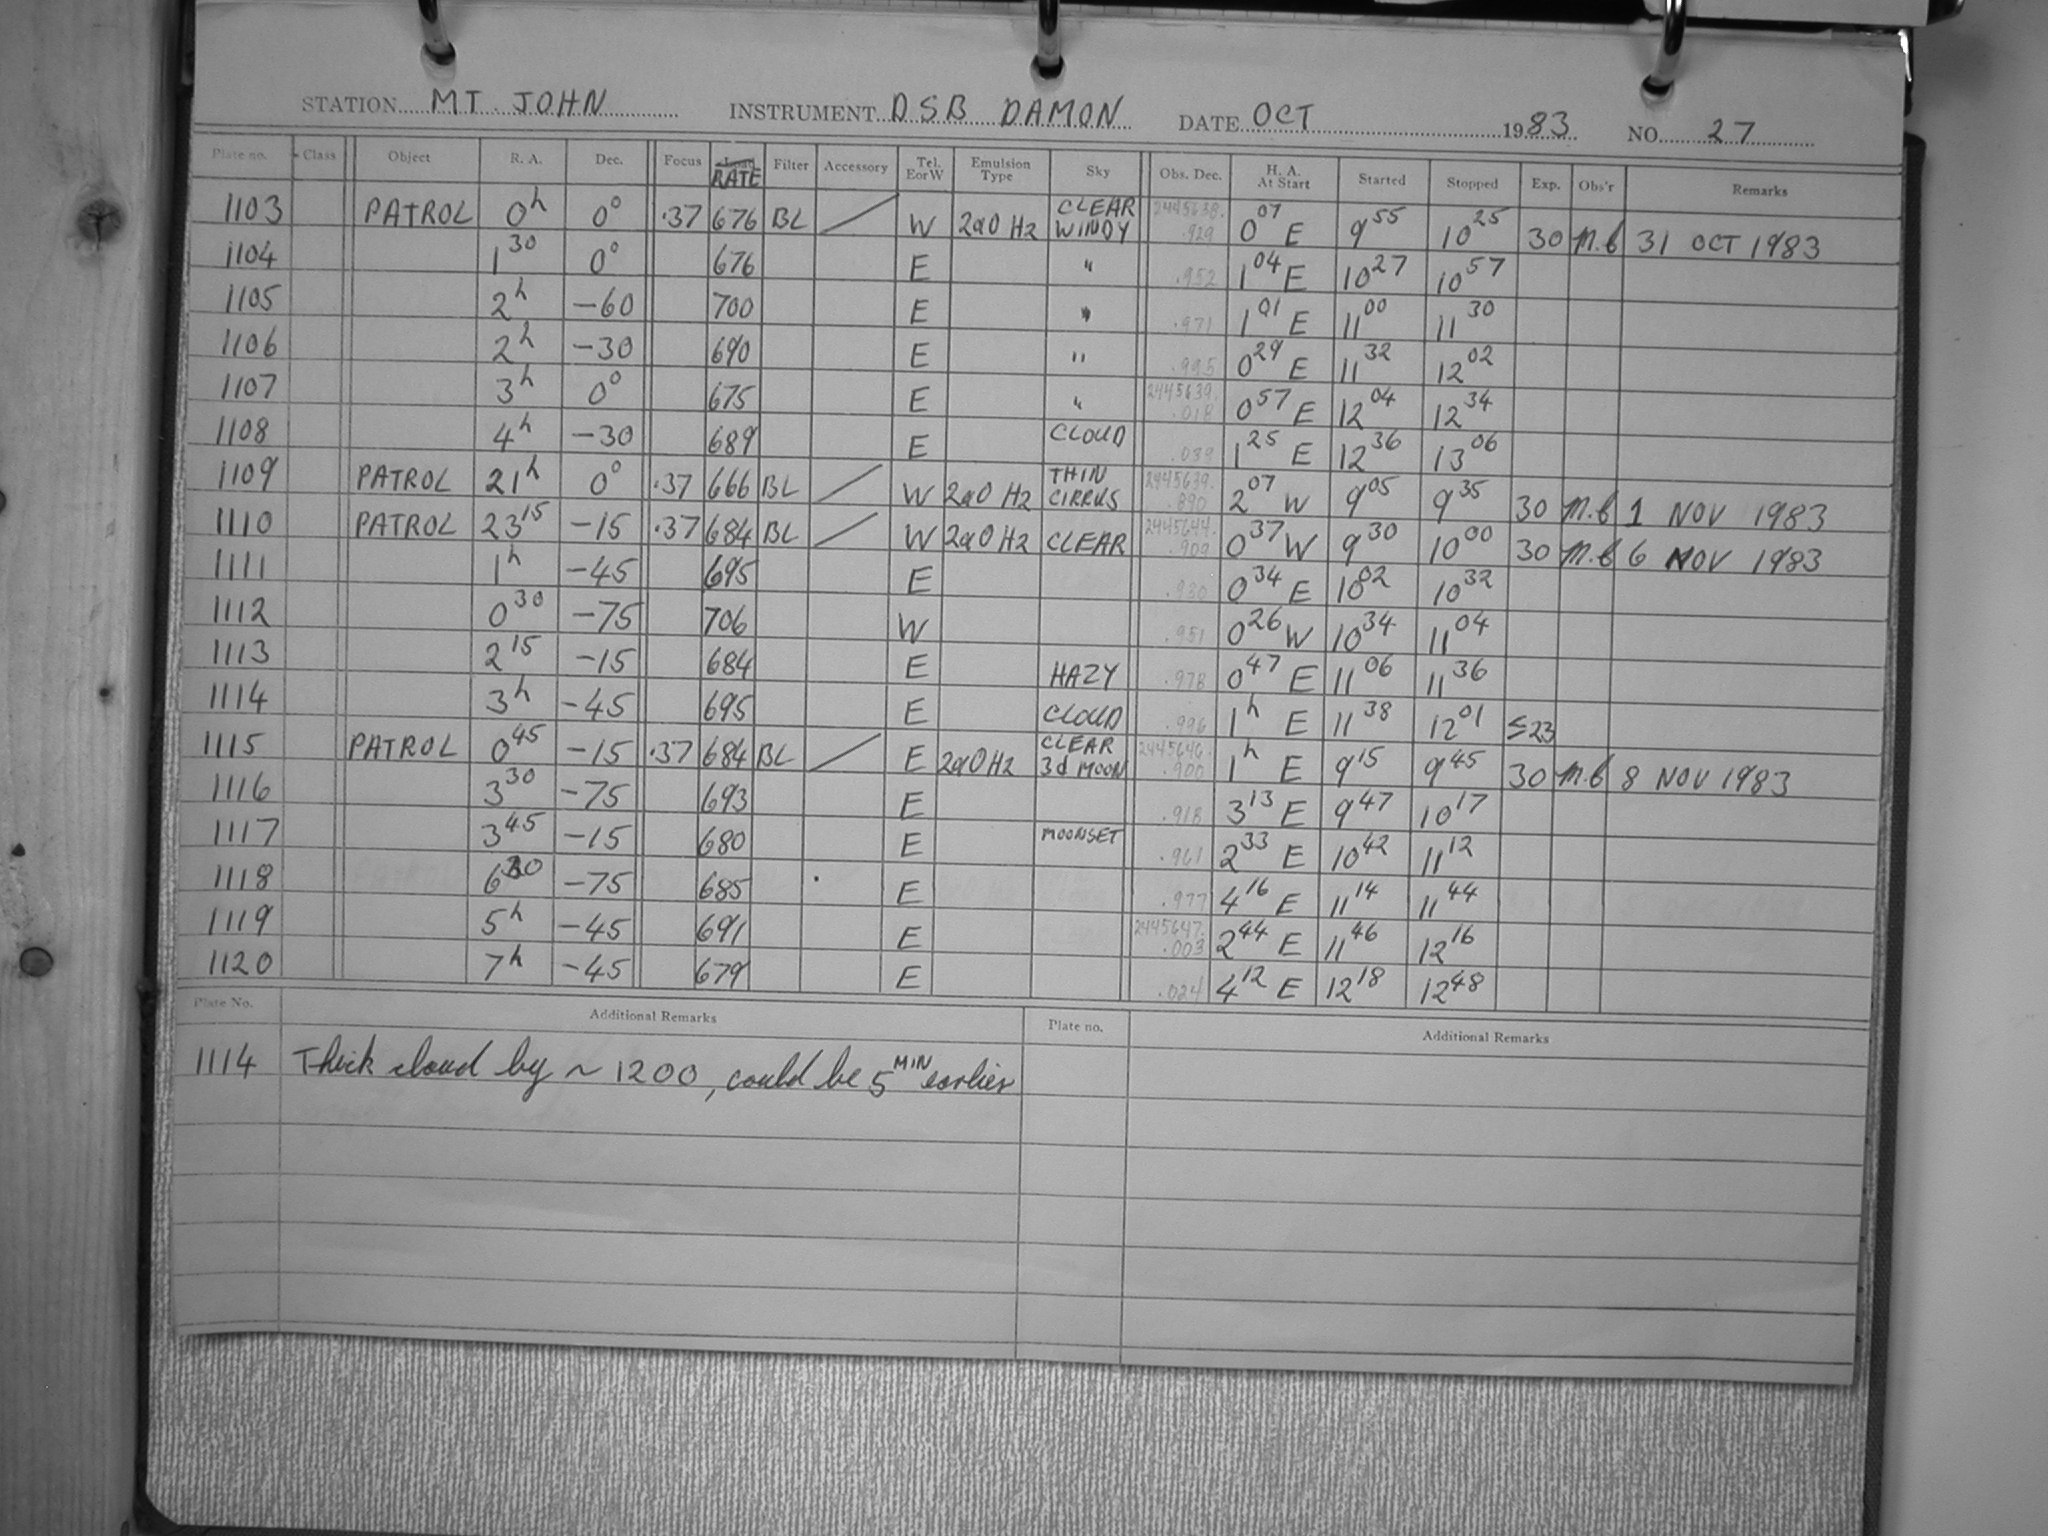 STATION MT. JOHN INSTRUMENT DSB DAMON DATE OCT 1983 NO. 27
Plate no. Class Object R. A. Dec. Focus RATE Filter Accessory Tel. EorW Emulsion Type Sky Obs. Dec. H. A. At Start Started Stopped Exp. Obs'r Remarks
1103 PATROL 0h 0° .37 676 BL W 2a0 H2 CLEAR WINDY 2445638. .929 0 07 E 9 55 10 25 30 M.B 31 OCT 1983
1104 1 30 0° 676 E " .952 1 04 E 10 27 10 57
1105 2h -60 700 E " .971 1 01 E 11 00 11 30
1106 2h -30 690 E " .995 0 29 E 11 32 12 02
1107 3h 0° 675 E " 2445639. .018 0 57 E 12 04 12 34
1108 4h -30 689 E CLOUD .039 1 25 E 12 36 13 06
1109 PATROL 21h 0° .37 666 BL W 2a0 H2 THIN CIRRUS 2445639. .890 2 07 W 9 05 9 35 30 M.B 1 NOV 1983
1110 PATROL 23 15 -15 .37 684 BL W 2a0 H2 CLEAR 2445644. .909 0 37 W 9 30 10 00 30 M.B 6 NOV 1983
1111 1h -45 695 E .930 0 34 E 10 02 10 32
1112 0 30 -75 706 W .951 0 26 W 10 34 11 04
1113 2 15 -15 684 E HAZY .978 0 47 E 11 06 11 36
1114 3h -45 695 E CLOUD .996 1h E 11 38 12 01 ≤23
1115 PATROL 0 45 -15 .37 684 BL E 2a0 H2 CLEAR 3d MOON 2445646. .900 1h E 9 15 9 45 30 M.B 8 NOV 1983
1116 3 30 -75 693 E .918 3 13 E 9 47 10 17
1117 3 45 -15 680 E MOONSET .961 2 33 E 10 42 11 12
1118 6 30 -75 685 E .977 4 16 E 11 14 11 44
1119 5h -45 691 E 2445647. .003 2 44 E 11 46 12 16
1120 7h -45 679 E .024 4 12 E 12 18 12 48
Plate No. Additional Remarks Plate no. Additional Remarks
1114 Thick cloud by ~ 1200, could be 5 MIN earlier